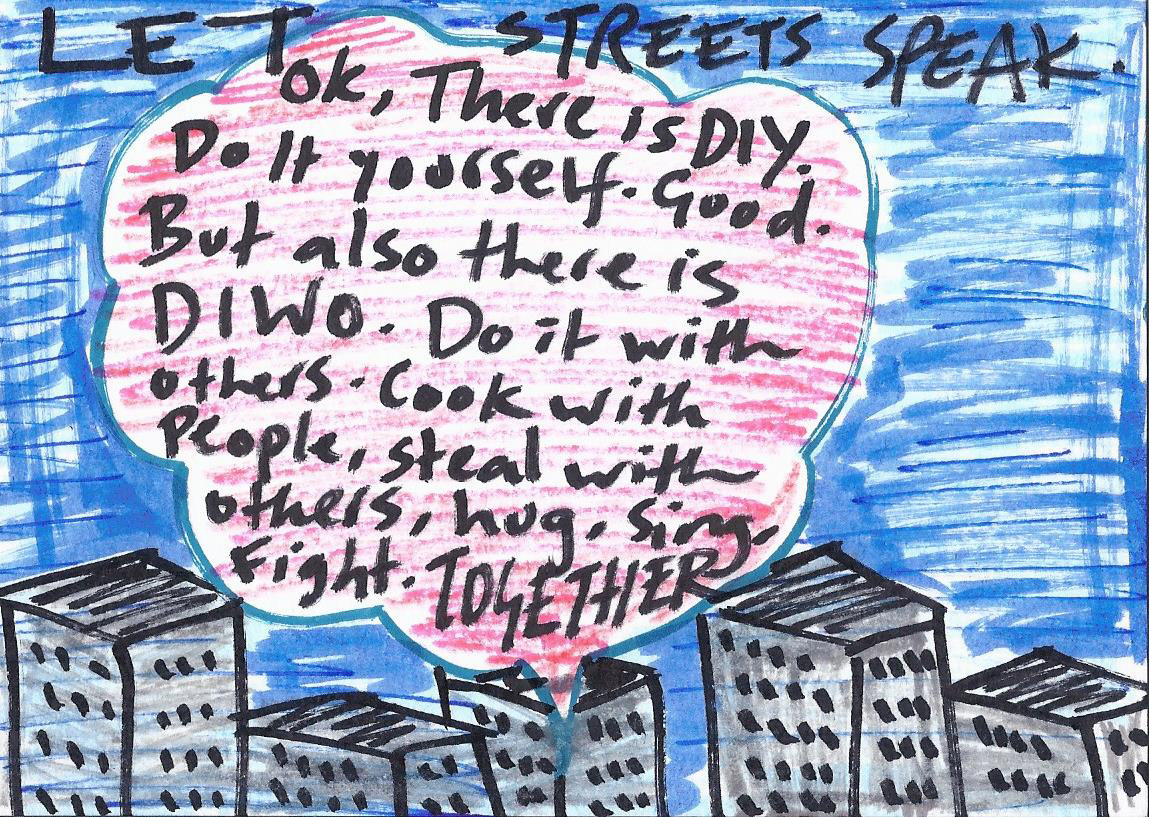 LET STREETS SPEAK.
Ok, There is DIY.
Do It yourself. Good.
But also there is
DIWO. Do it with
others. Cook with
People, steal with
others, hug, sing,
Fight. TOGETHER